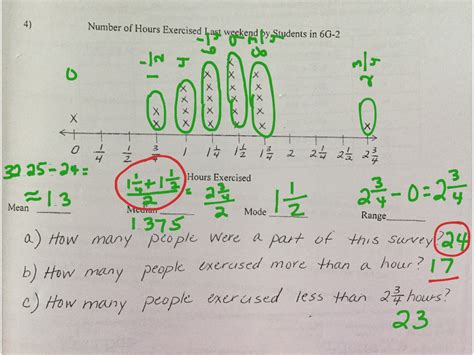 4)
Number of Hours Exercised Last weekend by Students in 6G-2
0 1 1/2 4
3/4
0 1/4 1/2 3/4 1 1 1/4 1 1/2 1 3/4 2 2 1/4 2 1/2 2 3/4
Hours Exercised
32.25 ÷ 24 =
≈ 1.3
(1 1/4 + 1 1/2)/2 = (2 3/4)/2
1 1/2
2 3/4 - 0 = 2 3/4
Mean
Median
Mode
Range
1.375
a) How many people were a part of this survey? 24
b) How many people exercised more than a hour? 17
c) How many people exercised less than 2 3/4 hours?
23